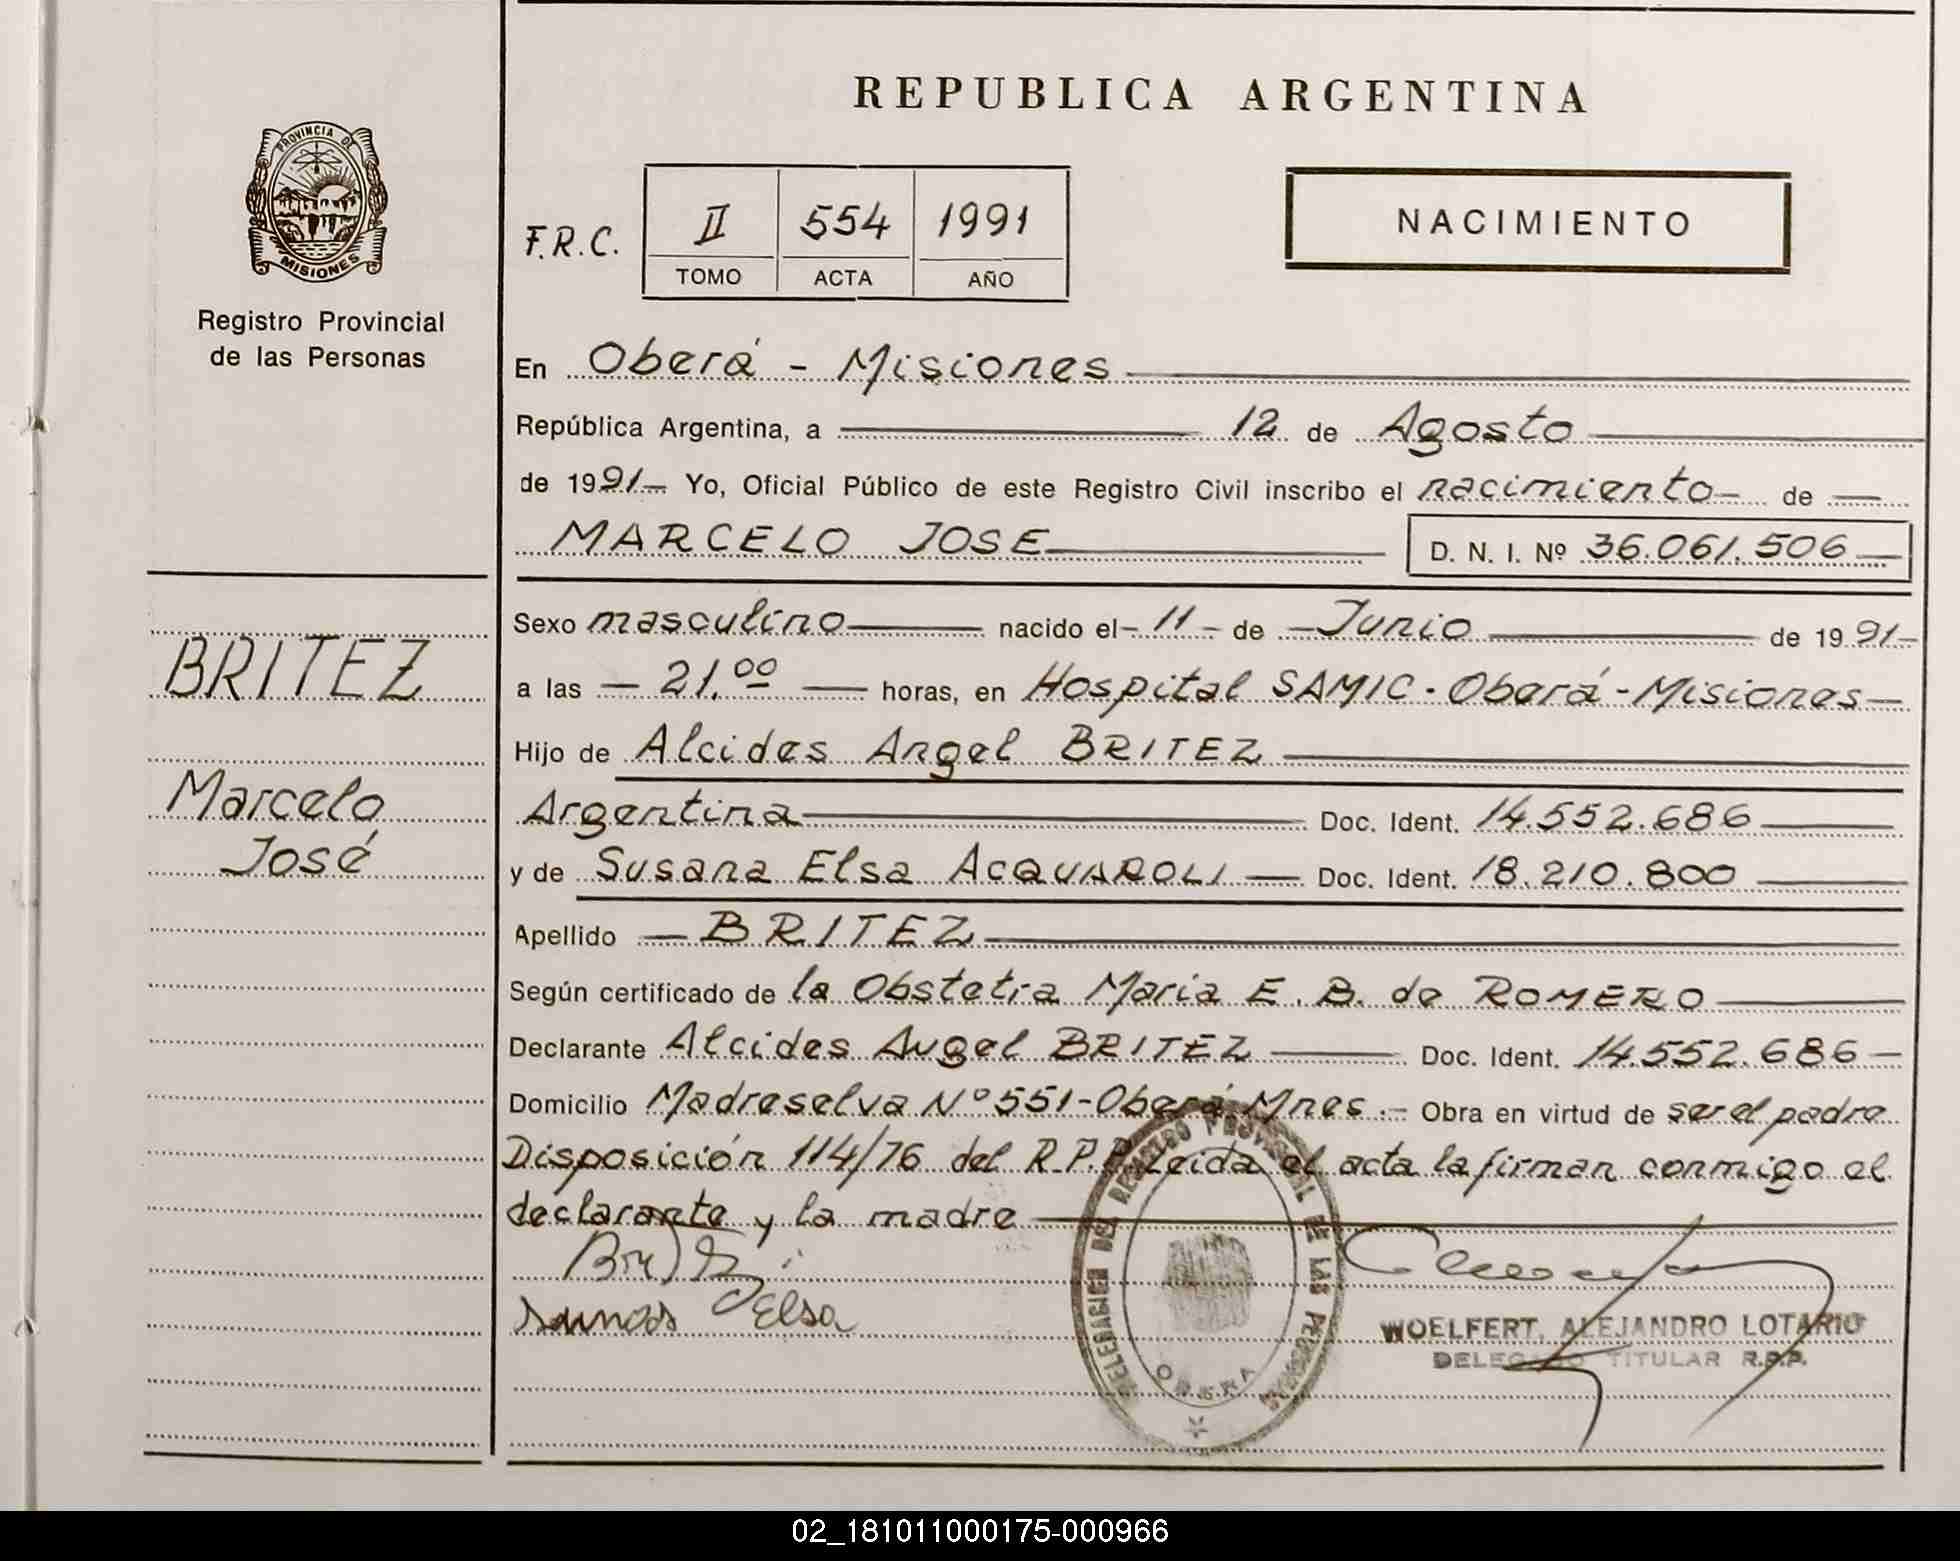 REPUBLICA ARGENTINA
PROVINCIA DE
MISIONES
Registro Provincial
de las Personas
F.R.C.
II 554 1991
TOMO ACTA AÑO
NACIMIENTO
En Oberá - Misiones
República Argentina, a 12 de Agosto
de 1991 Yo, Oficial Público de este Registro Civil inscribo el nacimiento de
MARCELO JOSE D. N. I. Nº 36.061.506
BRITEZ
Marcelo
José
Sexo masculino nacido el 11 de Junio de 1991
a las 21.00 horas, en Hospital SAMIC - Oberá - Misiones
Hijo de Alcides Angel BRITEZ
Argentina Doc. Ident. 14.552.686
y de Susana Elsa ACQUAROLI Doc. Ident. 18.210.800
Apellido BRITEZ
Según certificado de la Obstetra Maria E. B. de ROMERO
Declarante Alcides Angel BRITEZ Doc. Ident. 14.552.686
Domicilio Madreselva Nº 551 - Oberá Mnes. Obra en virtud de ser el padre
Disposición 114/76 del R.P.P. Leida el acta la firman conmigo el
declarante y la madre
Elsa
DELEGACION DEL REGISTRO PROVINCIAL DE LAS PERSONAS
OBERA
WOELFERT, ALEJANDRO LOTARIO
DELEGADO TITULAR R.P.P.
02_181011000175-000966